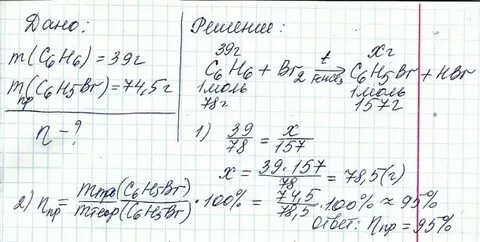 Дано:
m(C6H6) = 39г
mпр(C6H5Br) = 74,5г
η - ?
Решение:
39г xг
C6H6 + Br2 →t C6H5Br + HBr
1моль 1моль
78г 157г
1) 39/78 = x/157
x = 39·157/78 = 78,5(г)
2) ηпр = mпр(C6H5Br)/mтеор(C6H5Br) · 100% = 74,5/78,5 · 100% ≈ 95%
Ответ: ηпр = 95%